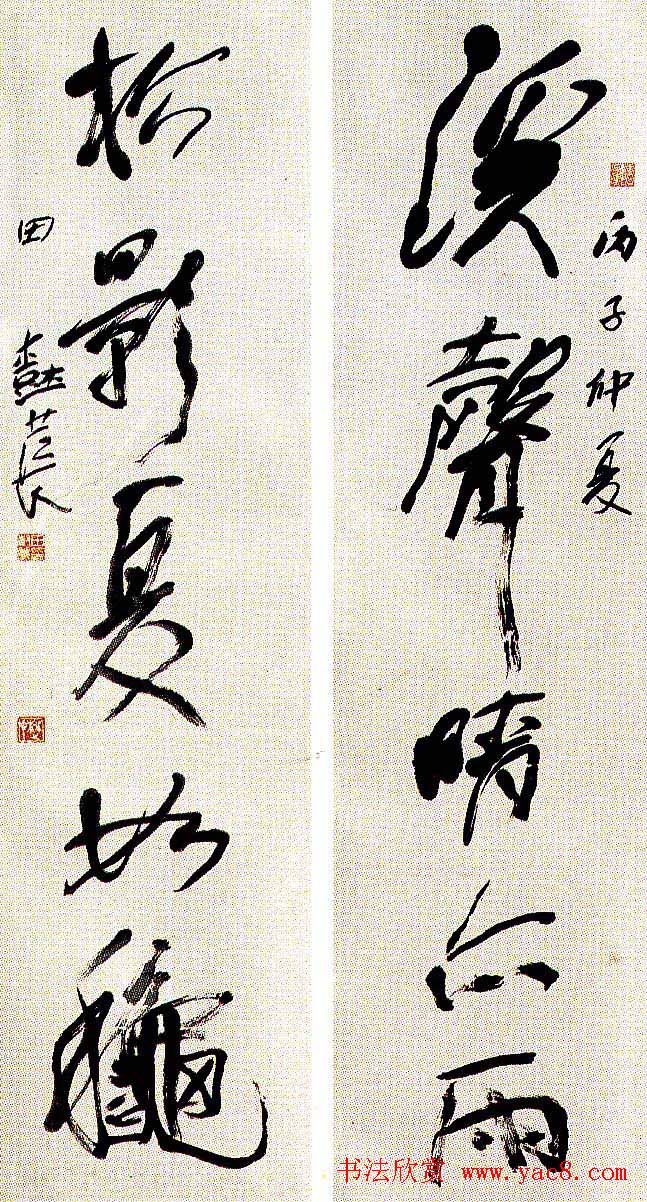 丙子仲夏
溪聲晴亦雨
松影夏如龝
田樹萇
书法欣赏 www.yac8.com